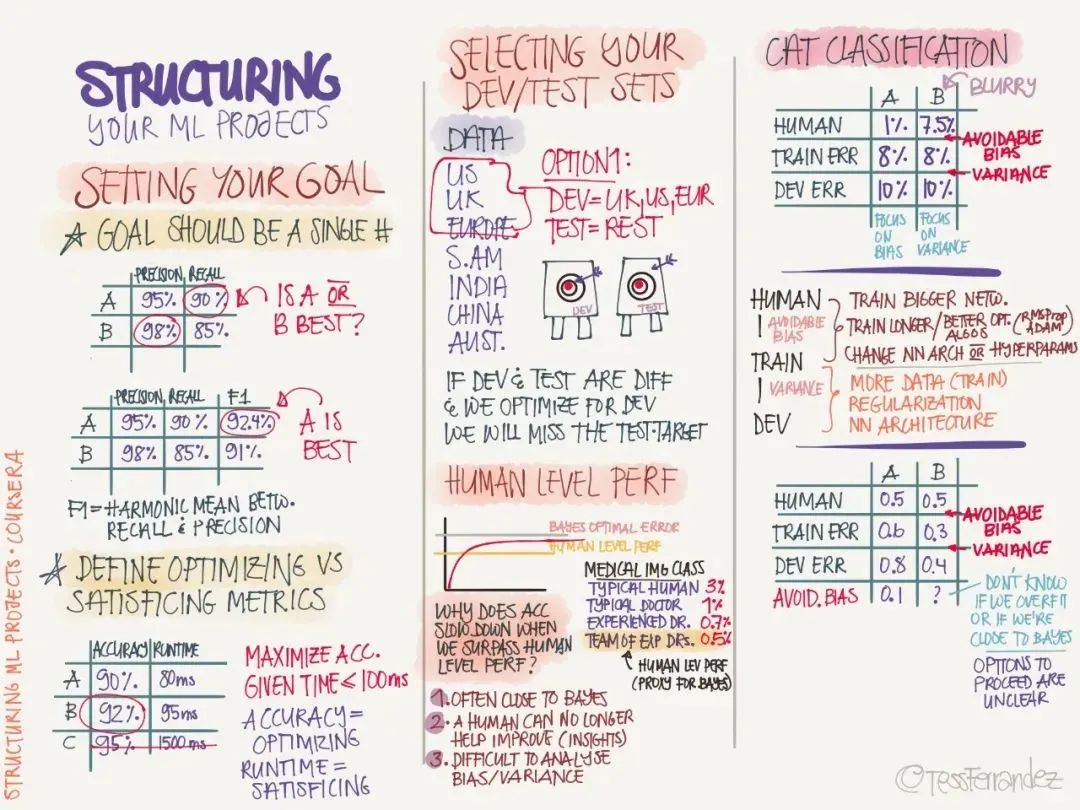 STRUCTURING
YOUR ML PROJECTS
SETTING YOUR GOAL
☆ GOAL SHOULD BE A SINGLE #
PRECISION RECALL
A 95% 90%
B 98% 85%
IS A OR
B BEST?
PRECISION RECALL F1
A 95% 90% 92.4%
B 98% 85% 91%
A IS
BEST
F1 = HARMONIC MEAN BETW.
RECALL & PRECISION
☆ DEFINE OPTIMIZING VS
SATISFICING METRICS
ACCURACY RUNTIME
A 90% 80ms
B 92% 95ms
C 95% 1500ms
MAXIMIZE ACC.
GIVEN TIME ≤ 100ms
ACCURACY =
OPTIMIZING
RUNTIME =
SATISFICING
STRUCTURING ML PROJECTS · COURSERA
SELECTING YOUR
DEV/TEST SETS
DATA
US
UK
EUROPE
S.AM
INDIA
CHINA
AUST.
OPTION1:
DEV = UK, US, EUR
TEST = REST
DEV
TEST
IF DEV & TEST ARE DIFF
& WE OPTIMIZE FOR DEV
WE WILL MISS THE TEST-TARGET
HUMAN LEVEL PERF
BAYES OPTIMAL ERROR
HUMAN LEVEL PERF
MEDICAL IMG CLASS
TYPICAL HUMAN 3%
TYPICAL DOCTOR 1%
EXPERIENCED DR. 0.7%
TEAM OF EXP DRS. 0.5%
HUMAN LEV PERF
(PROXY FOR BAYES)
WHY DOES ACC
SLOW DOWN WHEN
WE SURPASS HUMAN
LEVEL PERF?
1. OFTEN CLOSE TO BAYES
2. A HUMAN CAN NO LONGER
HELP IMPROVE (INSIGHTS)
3. DIFFICULT TO ANALYSE
BIAS/VARIANCE
CAT CLASSIFICATION
BLURRY
A B
HUMAN 1% 7.5%
TRAIN ERR 8% 8%
DEV ERR 10% 10%
AVOIDABLE
BIAS
VARIANCE
FOCUS
ON
BIAS
FOCUS
ON
VARIANCE
HUMAN
AVOIDABLE
BIAS
TRAIN
VARIANCE
DEV
TRAIN BIGGER NETW.
TRAIN LONGER/BETTER OPT. ALGOS (RMSProp ADAM)
CHANGE NN ARCH OR HYPERPARAMS
MORE DATA (TRAIN)
REGULARIZATION
NN ARCHITECTURE
A B
HUMAN 0.5 0.5
TRAIN ERR 0.6 0.3
DEV ERR 0.8 0.4
AVOID. BIAS 0.1 ?
AVOIDABLE
BIAS
VARIANCE
DON'T KNOW
IF WE OVERFIT
OR IF WE'RE
CLOSE TO BAYES
OPTIONS TO
PROCEED ARE
UNCLEAR
©TessFerrandez